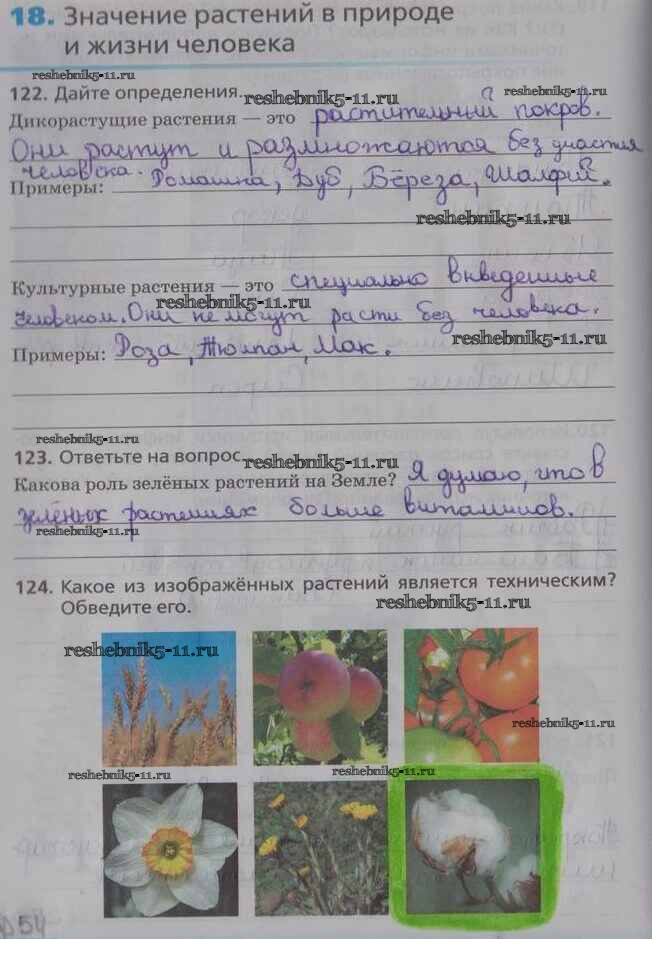 18. Значение растений в природе
и жизни человека
reshebnik5-11.ru
122. Дайте определения. reshebnik5-11.ru
Дикорастущие растения — это растительный покров.
Они растут и размножаются без участия
человека.
Примеры: Ромашка, Дуб, Берёза, Шалфей.
reshebnik5-11.ru
Культурные растения — это специально выведенные
reshebnik5-11.ru
человеком. Они не могут расти без человека.
reshebnik5-11.ru
Примеры: Роза, Тюльпан, Мак.
reshebnik5-11.ru
123. Ответьте на вопрос. reshebnik5-11.ru
Какова роль зелёных растений на Земле? Я думаю, что в
зелёных растениях больше витаминов.
reshebnik5-11.ru
124. Какое из изображённых растений является техническим?
Обведите его. reshebnik5-11.ru
reshebnik5-11.ru
reshebnik5-11.ru
reshebnik5-11.ru
reshebnik5-11.ru
54